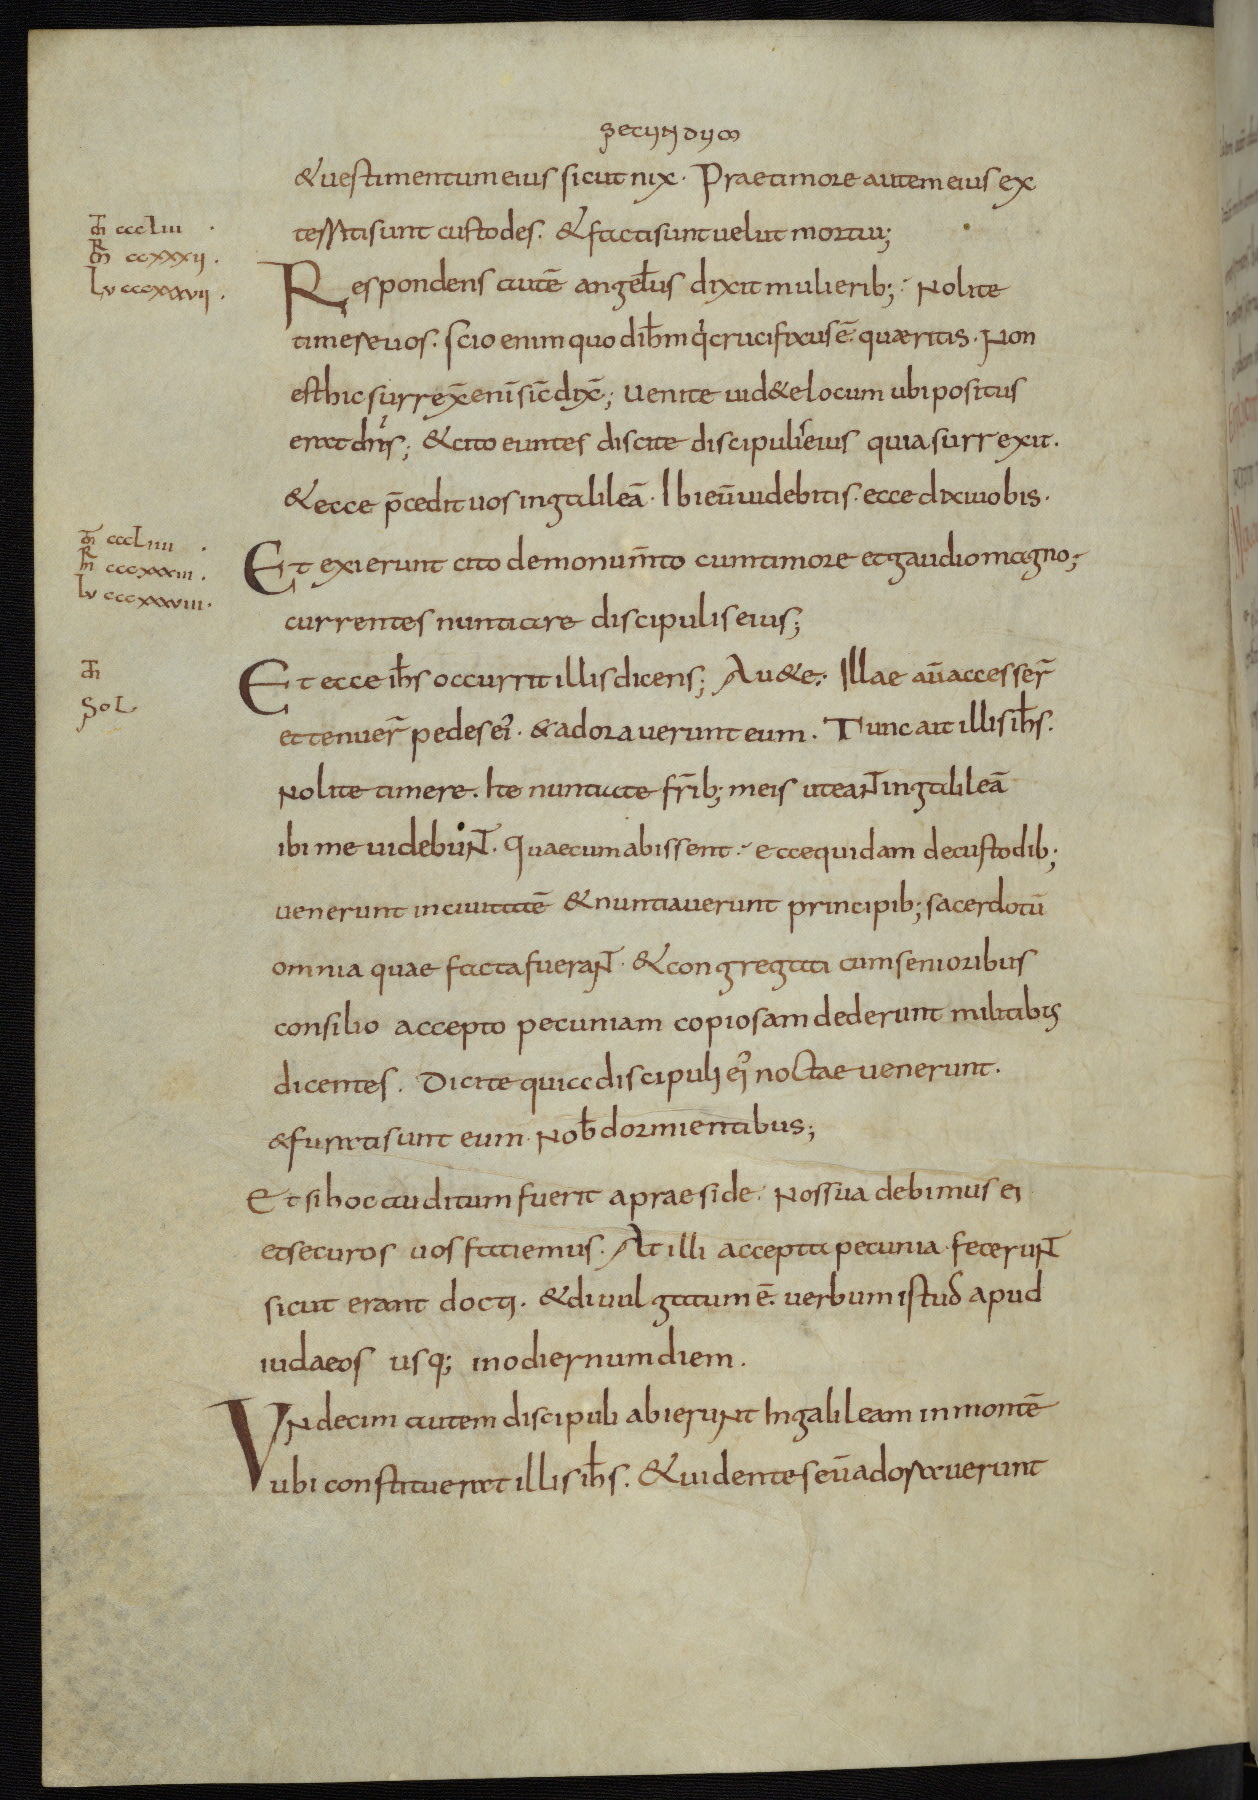 secundum
&uestimentum eius sicut nix. Praetimore autem eius ex
territi sunt custodes. & facti sunt uelut mortui;
m̄ cccliii
m̄r ccxxxii.
Lu cccxxxvii.
Respondens autē angelus dixit mulierib; Nolite
timere uos. scio enim quod ihm̄ q crucifixus ē. quaeritis. Non
est hic surrex̄ eni sic̄ dix̄; Uenite uid&e locum ubi positus
erat dns; & cito euntes discite discipulis eius quia surrexit.
& ecce p̄cedit uos in galileā. Ibi eū uidebitis. ecce dixi uobis.
m̄ cccliiii
m̄r ccxxxiii.
Lu cccxxxviii.
Et exierunt cito de monum̄to cum timore et gaudio magno;
currentes nuntiare discipulis eius;
m̄
Sol
Et ecce ihs occurrit illis dicens; Au&e. Illae aū accesser̄
et tenuer̄ pedes ei'. & adorauerunt eum. Tunc ait illis ihs.
Nolite timere. Ite nuntiate fr̄ib; meis ut eaNT in galileā
ibi me uidebuNT. Quae cum abissent. ecce quidam de custodib;
uenerunt in ciuitatē & nuntiauerunt principib; sacerdotū
omnia quae facta fueraNT. & congregati cum senioribus
consilio accepto pecuniam copiosam dederunt militibus
dicentes. Dicite quia discipuli ei' noctae uenerunt.
& furati sunt eum. Nob̄ dormientibus;
Et si hoc auditum fuerit a praeside. Nos sua debimus ei
et securos uos faciemus. At illi accepta pecunia. feceruNT
sicut erant docti. & diuulgatum ē. uerbum istud apud
iudaeos usq; in odiernum diem.
Undecim autem discipuli abierunt In galileam in montē
ubi constituerat illis ihs. & uidentes eū adorauerunt